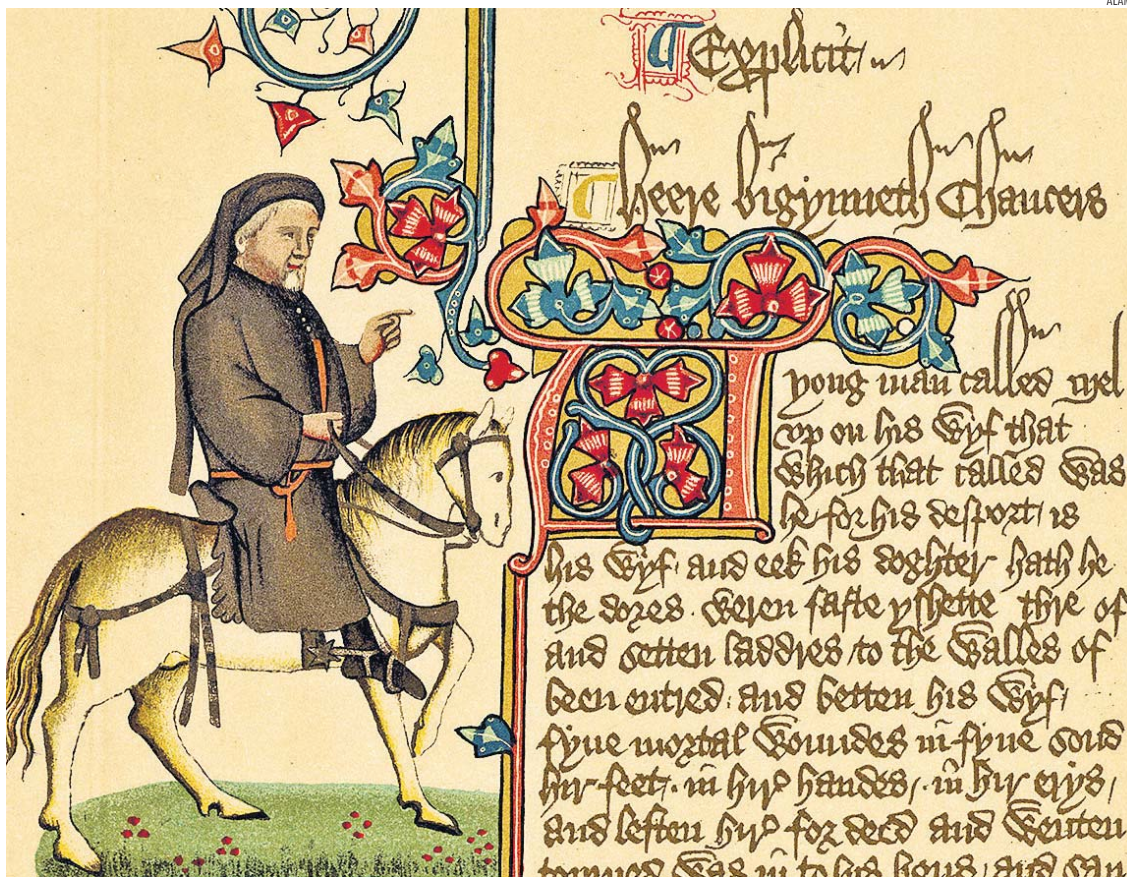 ALAM
Explicit
heere bigynneth Chaucers
yong man called Mel
vp on his wyf that
which that called was
he for his desport is
his wyf and eek his doghter hath he
the dores weren faste yshette thre of
and setten laddres to the walles of
been entred and betten his wyf
fyue mortal woundes in fyue sond
hir feet in hir handes in hir erys
and leften hir for deed and wenten
tourned was in to his hous and saugh